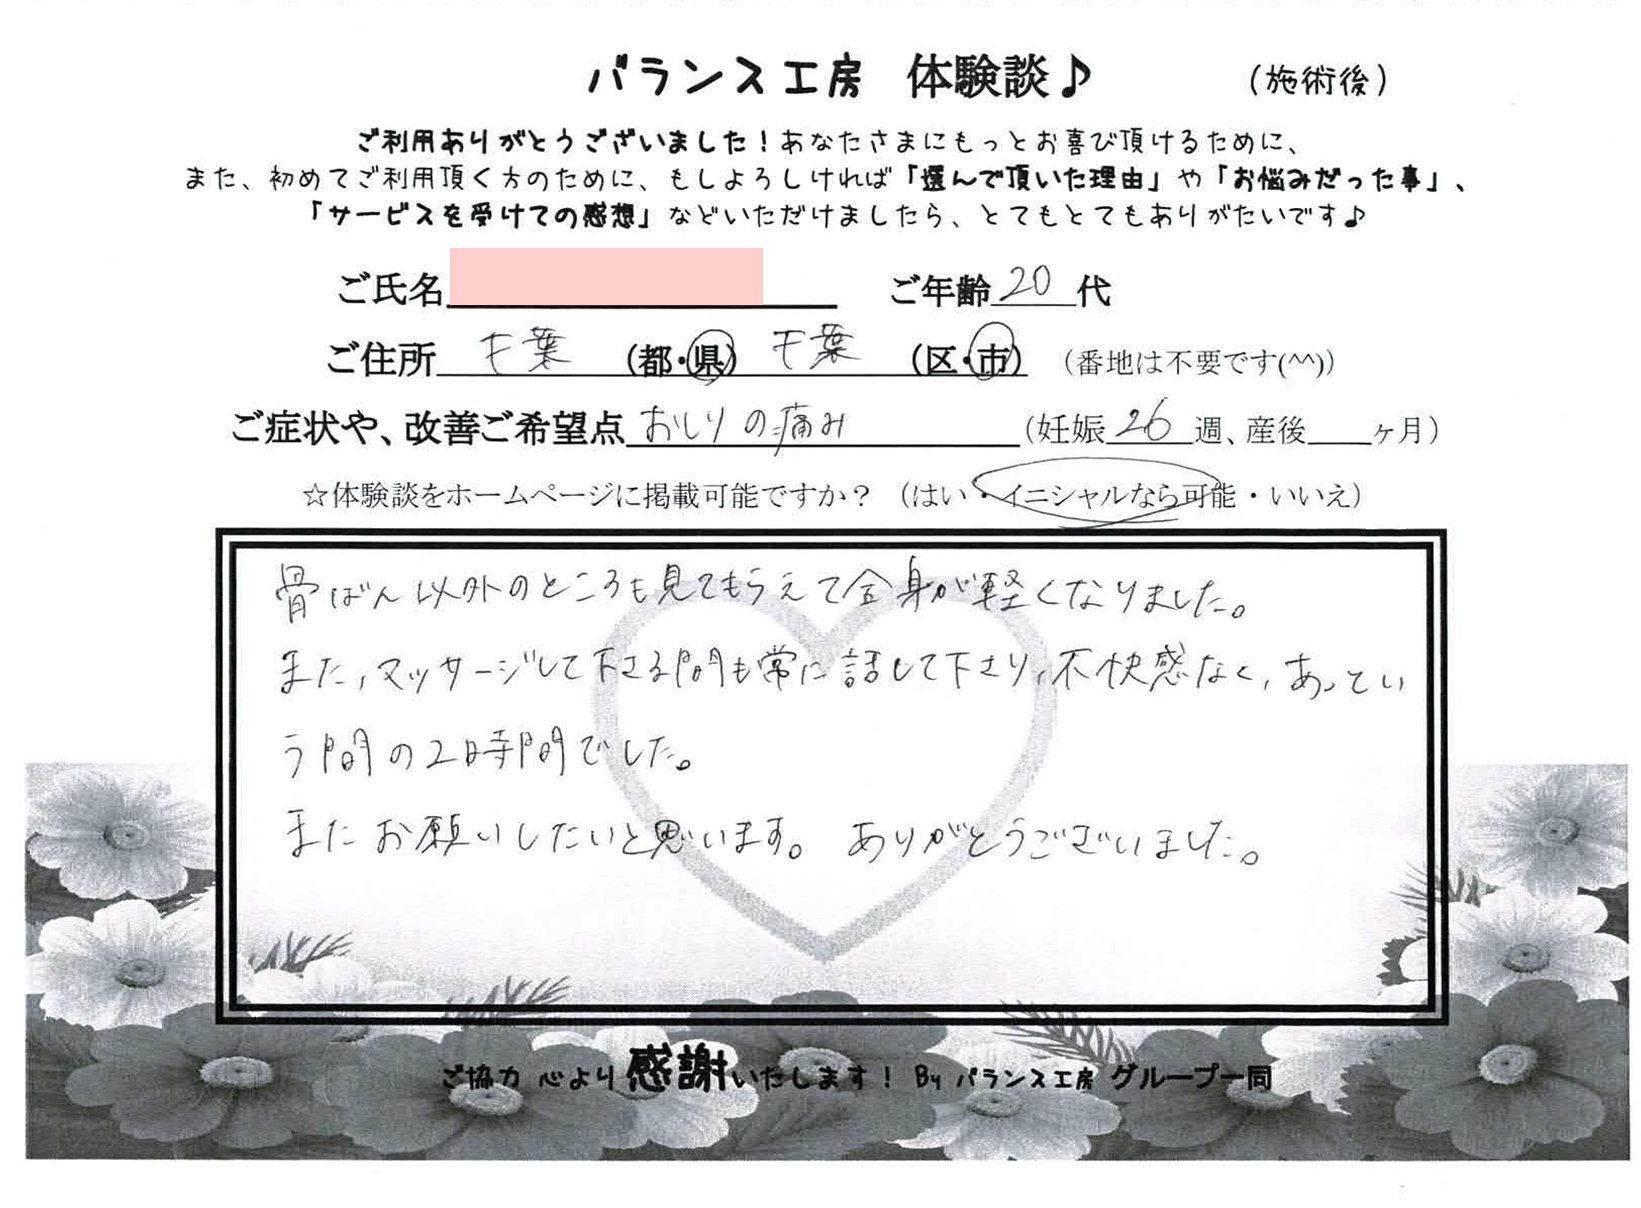 バランス工房 体験談♪ (施術後)
ご利用ありがとうございました！あなたさまにもっとお喜び頂けるために、
また、初めてご利用頂く方のために、もしよろしければ「選んで頂いた理由」や「お悩みだった事」、
「サービスを受けての感想」などいただけましたら、とてもとてもありがたいです♪
ご氏名 ご年齢 20 代
ご住所 千葉 (都・県) 千葉 (区・市) (番地は不要です(^^))
ご症状や、改善ご希望点 おしりの痛み (妊娠 26 週、産後 ヶ月)
☆体験談をホームページに掲載可能ですか？ (はい・イニシャルなら可能・いいえ)
骨ばん以外のところも見てもらえて全身が軽くなりました。
また、マッサージして下さる間も常に話して下さり、不快感なく、あってい
う間の2時間でした。
またお願いしたいと思います。 ありがとうございました。
ご協力 心より感謝いたします！ By バランス工房 グループ一同